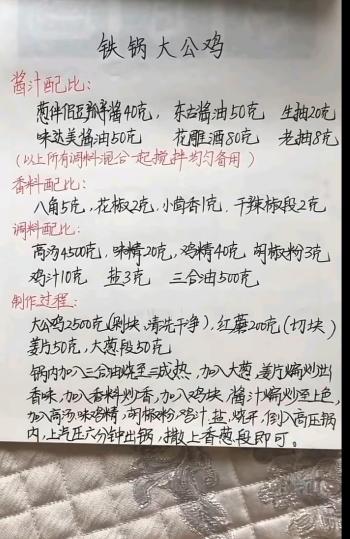 铁锅大公鸡
酱汁配比:
葱伴侣豆瓣酱40克, 东古酱油50克 生抽20克
味达美酱油50克 花雕酒80克 老抽8克
(以上所有调料混合一起搅拌均匀备用)
香料配比:
八角5克, 花椒2克, 小茴香1克, 干辣椒段2克
调料配比:
高汤4500克, 味精20克, 鸡精40克, 胡椒粉3克
鸡汁10克 盐3克 三合油500克
制作过程:
大公鸡2500克(剁块、清洗干净), 红薯200克(切块)
姜片50克, 大葱段50克
锅内加入三合油烧至三成热, 加入大葱, 姜片煸炒出
香味, 加入香料炒香, 加入鸡块, 酱汁煸炒至上色,
加入高汤、味鸡精, 胡椒粉, 鸡汁, 盐, 烧开, 倒入高压锅
内, 上汽压六分钟出锅, 撒上香葱段即可。